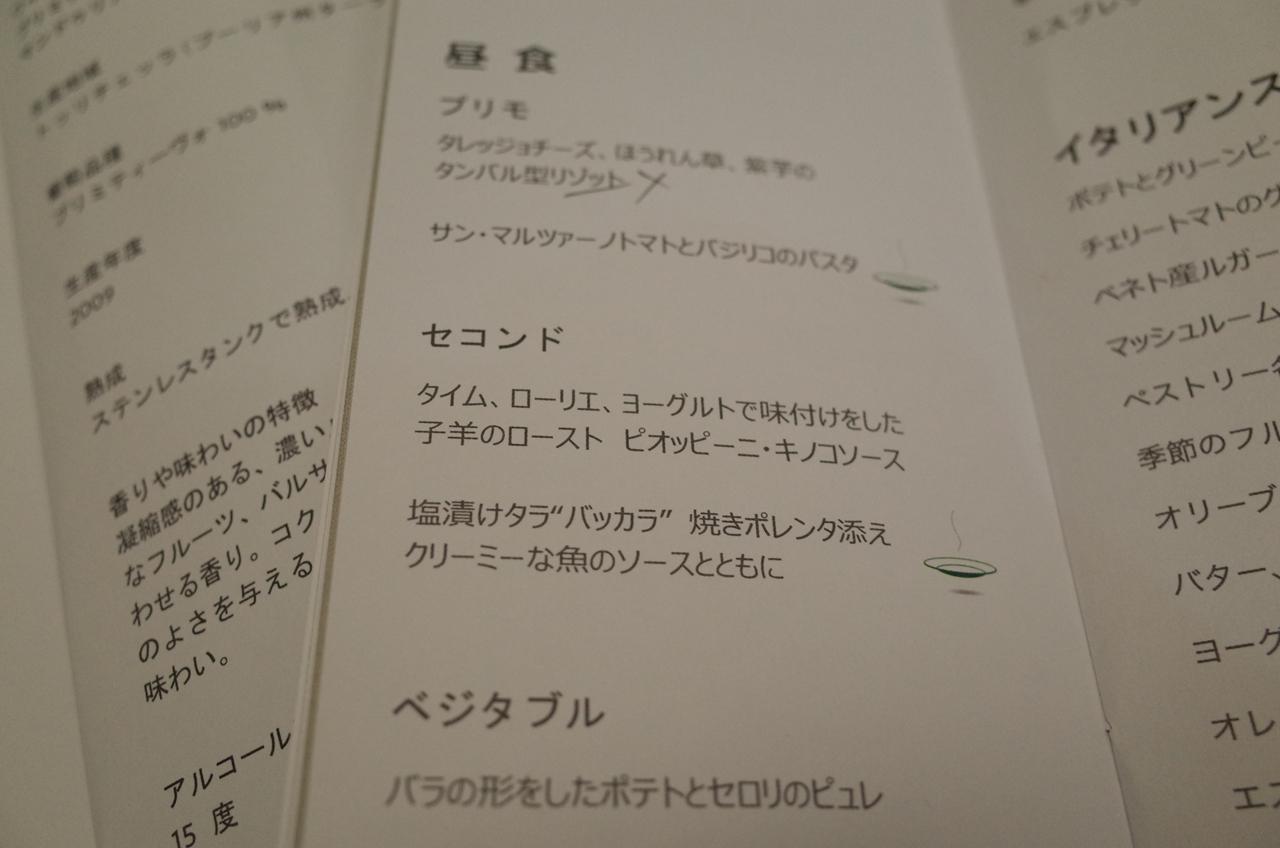 生産地域
葡萄品種
プリミティーヴォ 100 %
生産年度
2009
熟成
ステンレスタンクで熟成
香りや味わいの特徴
凝縮感のある、濃い
なフルーツ、バルサ
わせる香り。コク
のよさを与える
味わい。
アルコール
15 度
昼 食
プリモ
タレッジョチーズ、ほうれん草、紫芋の
タンバル型リゾット
サン・マルツァーノトマトとバジリコのパスタ
セコンド
タイム、ローリエ、ヨーグルトで味付けをした
子羊のロースト ピオッピーニ・キノコソース
塩漬けタラ“バッカラ” 焼きポレンタ添え
クリーミーな魚のソースとともに
ベジタブル
バラの形をしたポテトとセロリのピュレ
エスプレッ
イタリアンス
ポテトとグリーンピー
チェリートマトのグ
ベネト産ルガー
マッシュルーム
ペストリー各
季節のフル
オリーブ
バター、
ヨーグ
オレ
エス